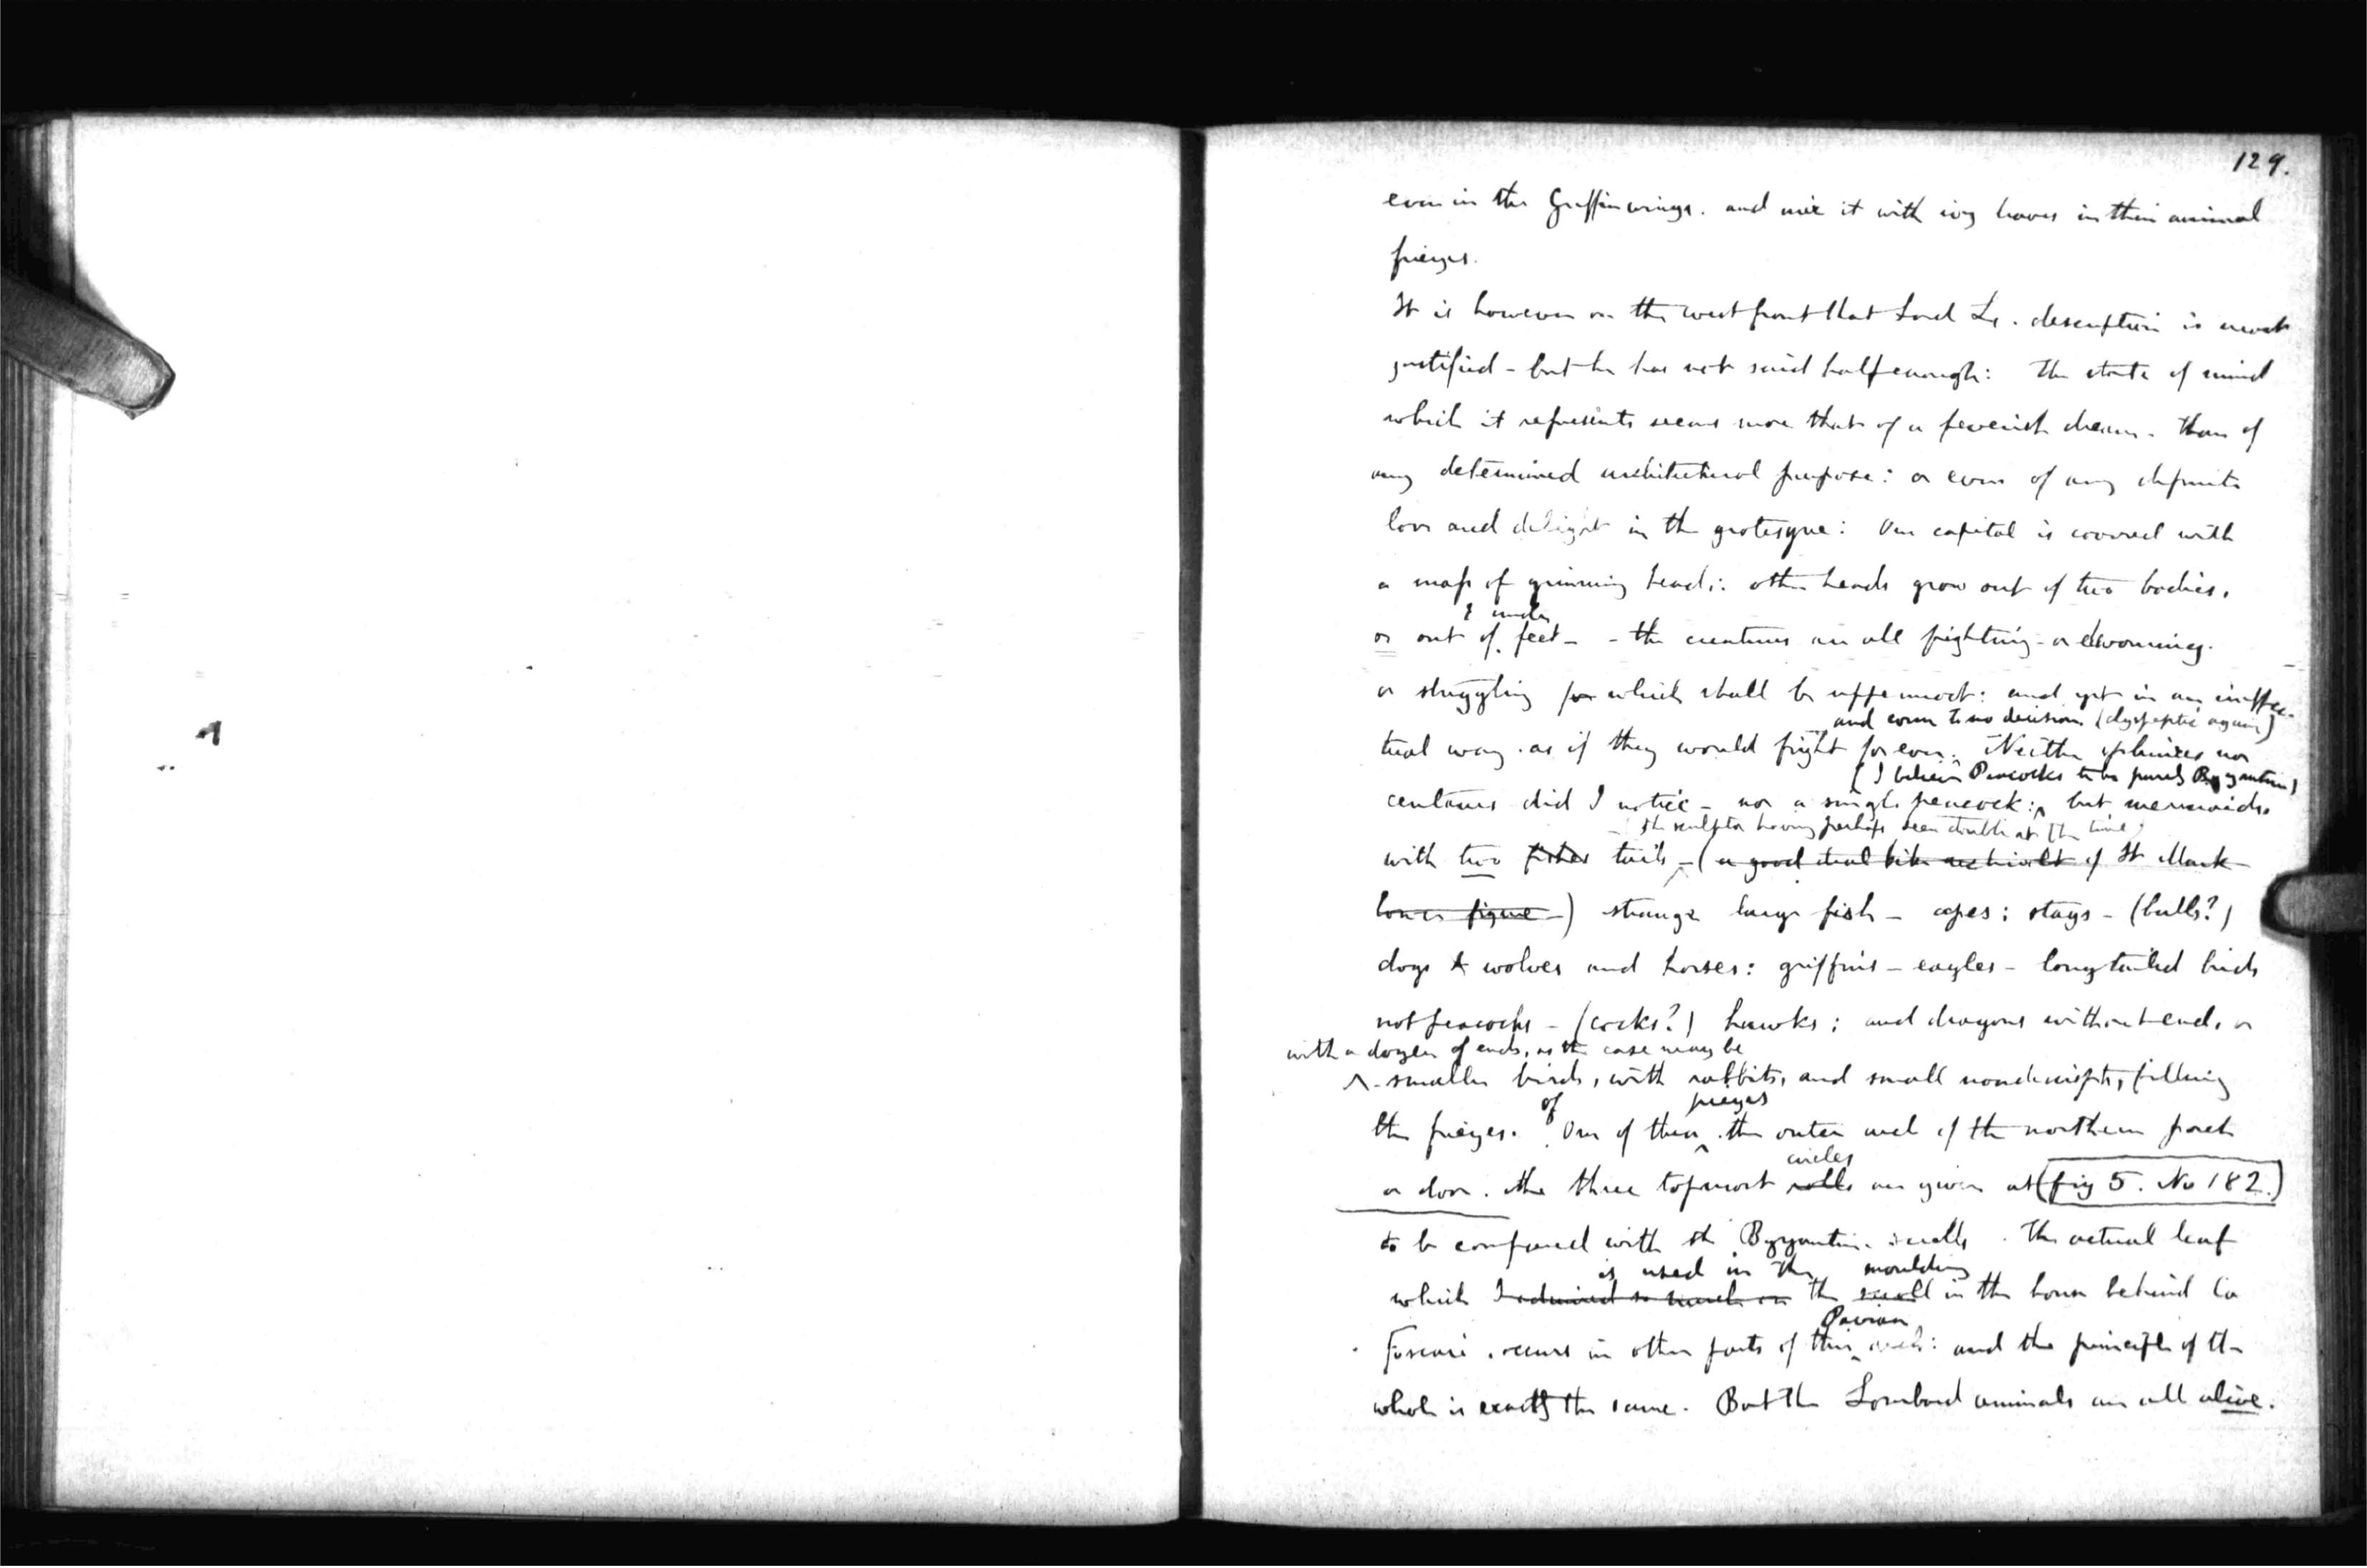 129.
even in the Griffin wings. and mix it with ivy leaves in their animal
friezes.
It is however on the west front that Lord Ls. description is most
justified - but he has not said half enough: The state of mind
which it represents seems more that of a feverish dream. than of
any determined architectural purpose: or even of any definite
love and delight in the grotesque: One capital is covered with
a mass of grinning heads: other heads grow out of two bodies,
& under
or out of feet - - the creatures are all fighting - or devouring.
or struggling for which shall be uppermost: and yet in an ineffec-
and come to no decision. (dyspeptic again)
tual way. as if they would fight for ever. Neither sphinxes nor
(I believe Peacocks to be purely Byzantine)
centaurs did I notice - nor a single peacock: but mermaids.
the sculptor having perhaps seen double at the time)
with two fishes tails - (a good deal like archivolt of St Mark
lower figure -) strange large fish - apes: stags - (bulls?)
dogs & wolves and horses: griffins - eagles - longtailed birds
not peacocks - (cocks?) hawks; and dragons without end, or
with a dozen of ends, as the case may be
smaller birds, with rabbits, and small nondescripts, filling
of friezes
the friezes. One of them the outer arch of the northern porch
circles
or door. the three topmost rolls are given at (fig 5. No 182.)
to be compared with the Byzantine scrolls. The actual leaf
is used in the moulding
which I admired so much on the scroll in the house behind Ca
Pavian
Foscari. occurs in other parts of this arch: and the principle of the
whole is exactly the same. But the Lombard animals are all alive.